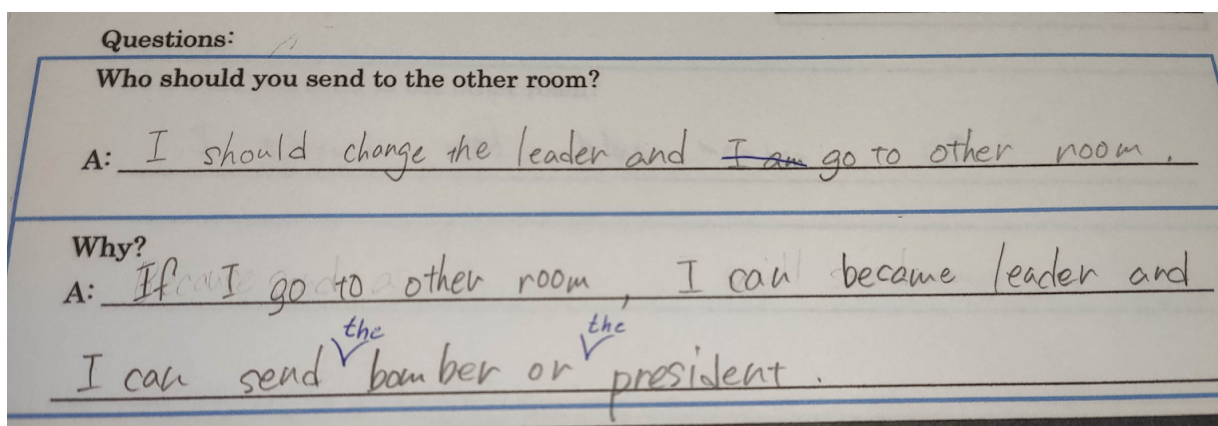 Questions:
Who should you send to the other room?
A: I should change the leader and I am go to other room.
Why?
A: If I go to other room, I can became leader and
the the
I can send bomber or president.